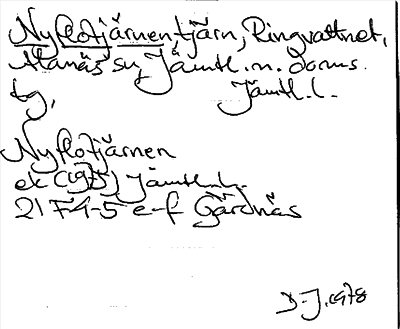 Nyflotjärnen tjärn, Ringvattnet,
Alanäs sn, Jämtl. n. doms.
tg, Jämtl. l.
Nyflotjärnen
ek (1975) Jämtl. l.
21 F 4-5 e-f Gärdnäs
D-J. 1978